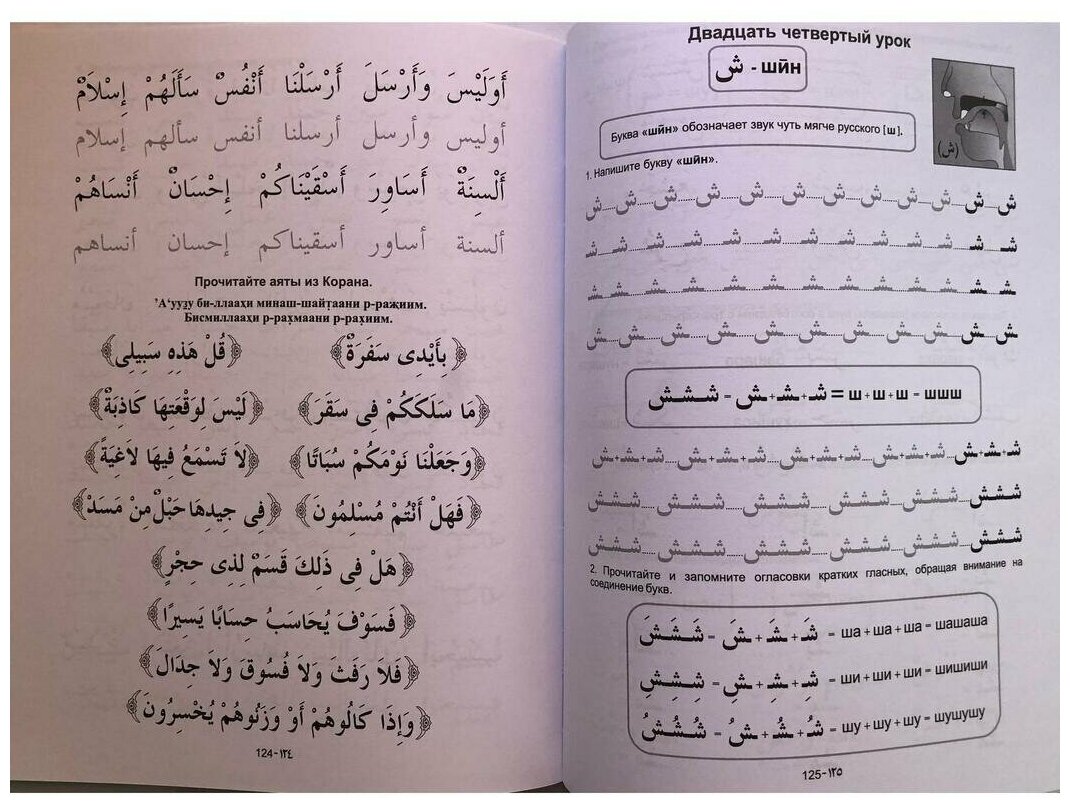 أَوَلَيْسَ وَأَرْسَلَ أَرْسَلْنَا أَنْفُسٌ سَأَلَهُمْ إِسْلَامٌ
أوليس وأرسل أرسلنا أنفس سألهم إسلام
أَلْسِنَةٌ أَسَاوِرَ أَسْقَيْنَاكُمْ إِحْسَانٌ أَنْسَاهُمْ
ألسنة أساور أسقيناكم إحسان أنساهم
Прочитайте аяты из Корана.
’А‘ууз̱у би-ллааҳи минаш-шайт̣аани р-ражиим.
Бисмиллааҳи р-рах̣маани р-рах̣иим.
﴿بِأَيْدِى سَفَرَةٌ﴾ ﴿قُلْ هَذِهِ سَبِيلِى﴾
﴿مَا سَلَكَكُمْ فِى سَقَرَ﴾ ﴿لَيْسَ لِوَقْعَتِهَا كَاذِبَةٌ﴾
﴿وَجَعَلْنَا نَوْمَكُمْ سُبَاتًا﴾ ﴿لَا تَسْمَعُ فِيهَا لَاغِيَةً﴾
﴿فَهَلْ أَنْتُمْ مُسْلِمُونَ﴾ ﴿فِى جِيدِهَا حَبْلٌ مِنْ مَسَدْ﴾
﴿هَلْ فِى ذَلِكَ قَسَمٌ لِذِى حِجْرٍ﴾
﴿فَسَوْفَ يُحَاسَبُ حِسَابًا يَسِيرًا﴾
﴿فَلَا رَفَثَ وَلَا فُسُوقَ وَلَا جِدَالَ﴾
﴿وَإِذَا كَالُوهُمْ أَوْ وَزَنُوهُمْ يُخْسِرُونَ﴾
124-١٢٤
Двадцать четвертый урок
ش - шӣн
(ش)
Буква «шӣн» обозначает звук чуть мягче русского [ш].
1. Напишите букву «шӣн».
ش.....ش.....ش.....ش.....ش.....ش.....ش.....ش.....ش.....ش.....ش
شـ.....شـ.....شـ.....شـ.....شـ.....شـ.....شـ.....شـ.....شـ.....شـ.....شـ
ـشـ.....ـشـ.....ـشـ.....ـشـ.....ـشـ.....ـشـ.....ـشـ.....ـشـ.....ـشـ.....ـشـ.....ـشـ
ـش.....ـش.....ـش.....ـش.....ـش.....ـش.....ـش.....ـش.....ـش.....ـش
ششش = شـ+ـشـ+ـش = ш + ш + ш = шшш
شـ+ـشـ+ـش.....شـ+ـشـ+ـش.....شـ+ـشـ+ـش.....شـ+ـشـ+ـش.....شـ+ـشـ+ـش
ششش.....ششش.....ششش.....ششش.....ششش.....ششش
ششش.....ششش.....ششش.....ششش.....ششش.....ششش
2. Прочитайте и запомните огласовки кратких гласных, обращая внимание на
соединение букв.
شَشَشَ = شَـ + ـشَـ + ـشَ = ша + ша + ша = шашаша
شِشِشِ = شِـ + ـشِـ + ـشِ = ши + ши + ши = шишиши
شُشُشُ = شُـ + ـشُـ + ـشُ = шу + шу + шу = шушушу
125-١٢٥